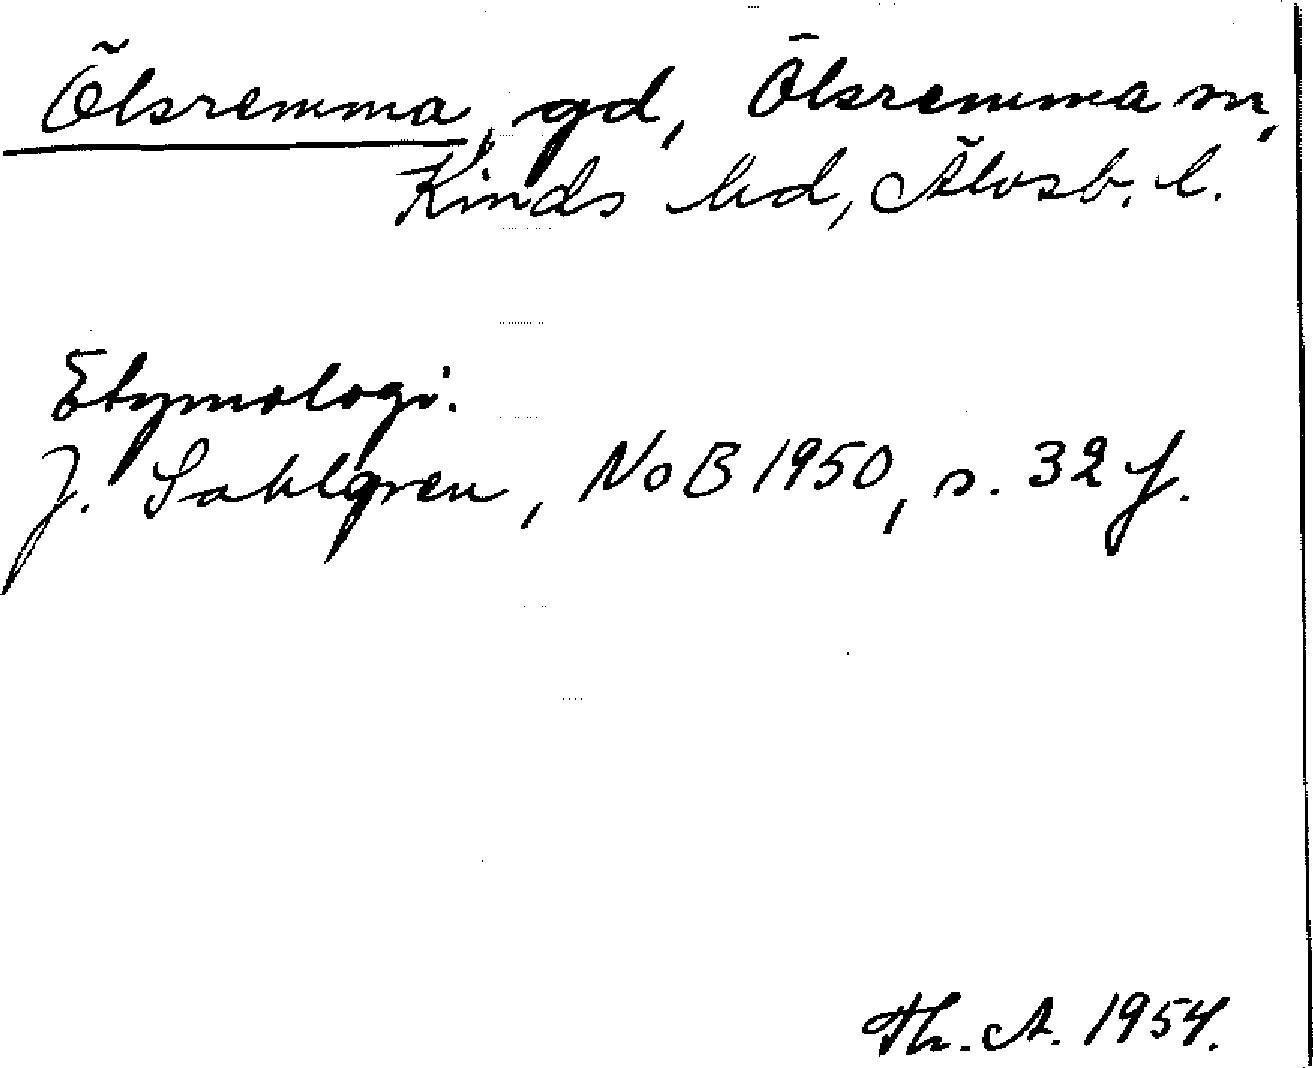 Ölsremma, gd, Ölsremma sn,
Kinds hd, Älvsb. l.
Etymologi.
J. Sahlgren, NoB 1950, s. 32 f.
Th. A. 1954.